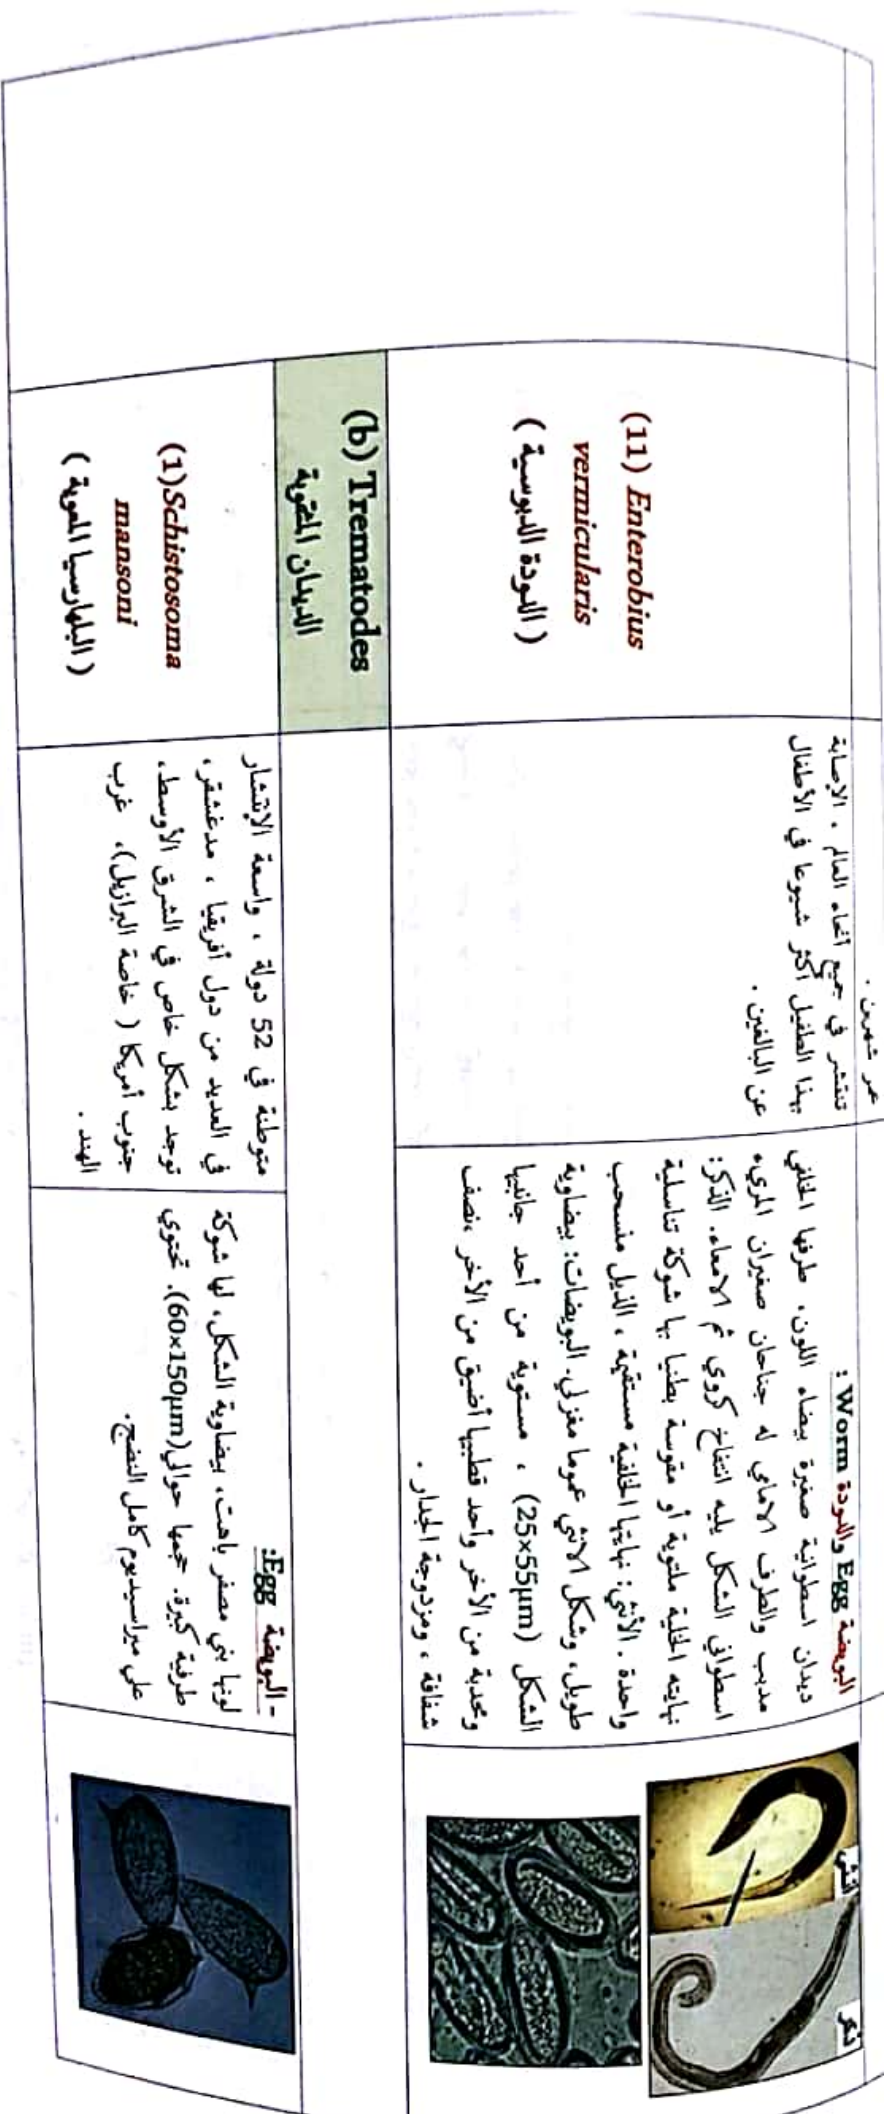 عمر شهرين .
(11) Enterobius
vermicularis
( الدودة الدبوسية )
تنتشر في جميع أنحاء العالم . الإصابة
بهذا الطفيل أكثر شيوعا في الأطفال
عن البالغين .
البويضة Egg والدودة Worm :
ديدان اسطوانية صغيرة بيضاء اللون، طرفها الخلفي
مدبب والطرف الامامي له جناحان صغيران المريء
اسطواني الشكل يليه انتفاخ كروي ثم الامعاء. الذكر:
نهايته الخلية ملتوية أو مقوسة بطنيا بها شوكة تناسلية
واحدة . الأنثي: نهايتها الخلفية مستقيمة ، الذيل منسحب
طويل، وشكل الانثي عموما مغزلي. البويضات: بيضاوية
الشكل (25x55µm) ، مستوية من أحد جانبيها
ومحدبة من الأخر وأحد قطبيها أضيق من الأخر ،نصف
شفافة ، ومزدوجة الجدار .
أنثى
ذكر
(b) Trematodes
الديدان المثقوبة
(1)Schistosoma
mansoni
( البلهارسيا المعوية )
متوطنة في 52 دولة ، واسعة الإنتشار
في العديد من دول أفريقيا ، مدغشقر،
توجد بشكل خاص في الشرق الأوسط،
جنوب أمريكا ( خاصة البرازيل)، غرب
الهند .
-البويضة Egg:
لونها بني مصفر باهت، بيضاوية الشكل، لها شوكة
طرفية كبيرة. حجمها حوالي(60x150µm). تحتوي
علي ميراسيديوم كامل النضج.